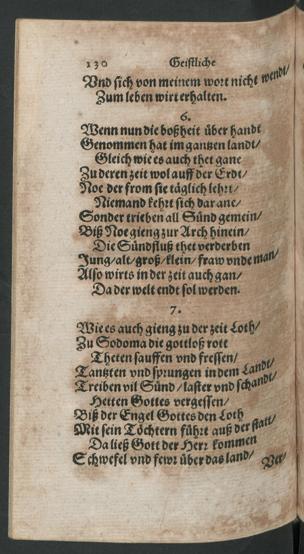 130 Geistliche
Vnd sich von meinem wort nicht wendt/
Zum leben wirt erhalten.
6.
Wenn nun die boßheit über handt
Genommen hat im gantzen landt/
Gleich wie es auch thet gane
Zu deren zeit wol auff der Erdt/
Noe der from sie täglich lehrt/
Niemand kehrt sich dar ane/
Sonder trieben all Sünd gemein/
Biß Noe gieng zur Arch hinein/
Die Sündfluß thet verderben
Jung/alt/groß/klein/fraw vnde man/
Also wirts in der zeit auch gan/
Da der welt endt sol werden.
7.
Wie es auch gieng zu der zeit Loth/
Zu Sodoma die gottloß rott
Theten sauffen vnd fressen/
Tantzten vnd sprungen in dem Landt/
Treiben vil Sünd/laster vnd schandt/
Hetten Gottes vergessen/
Biß der Engel Gottes den Loth
Mit sein Töchtern führt auß der statt/
Da ließ Gott der Herr kommen
Schwefel vnd fewr über das land/
Ver/